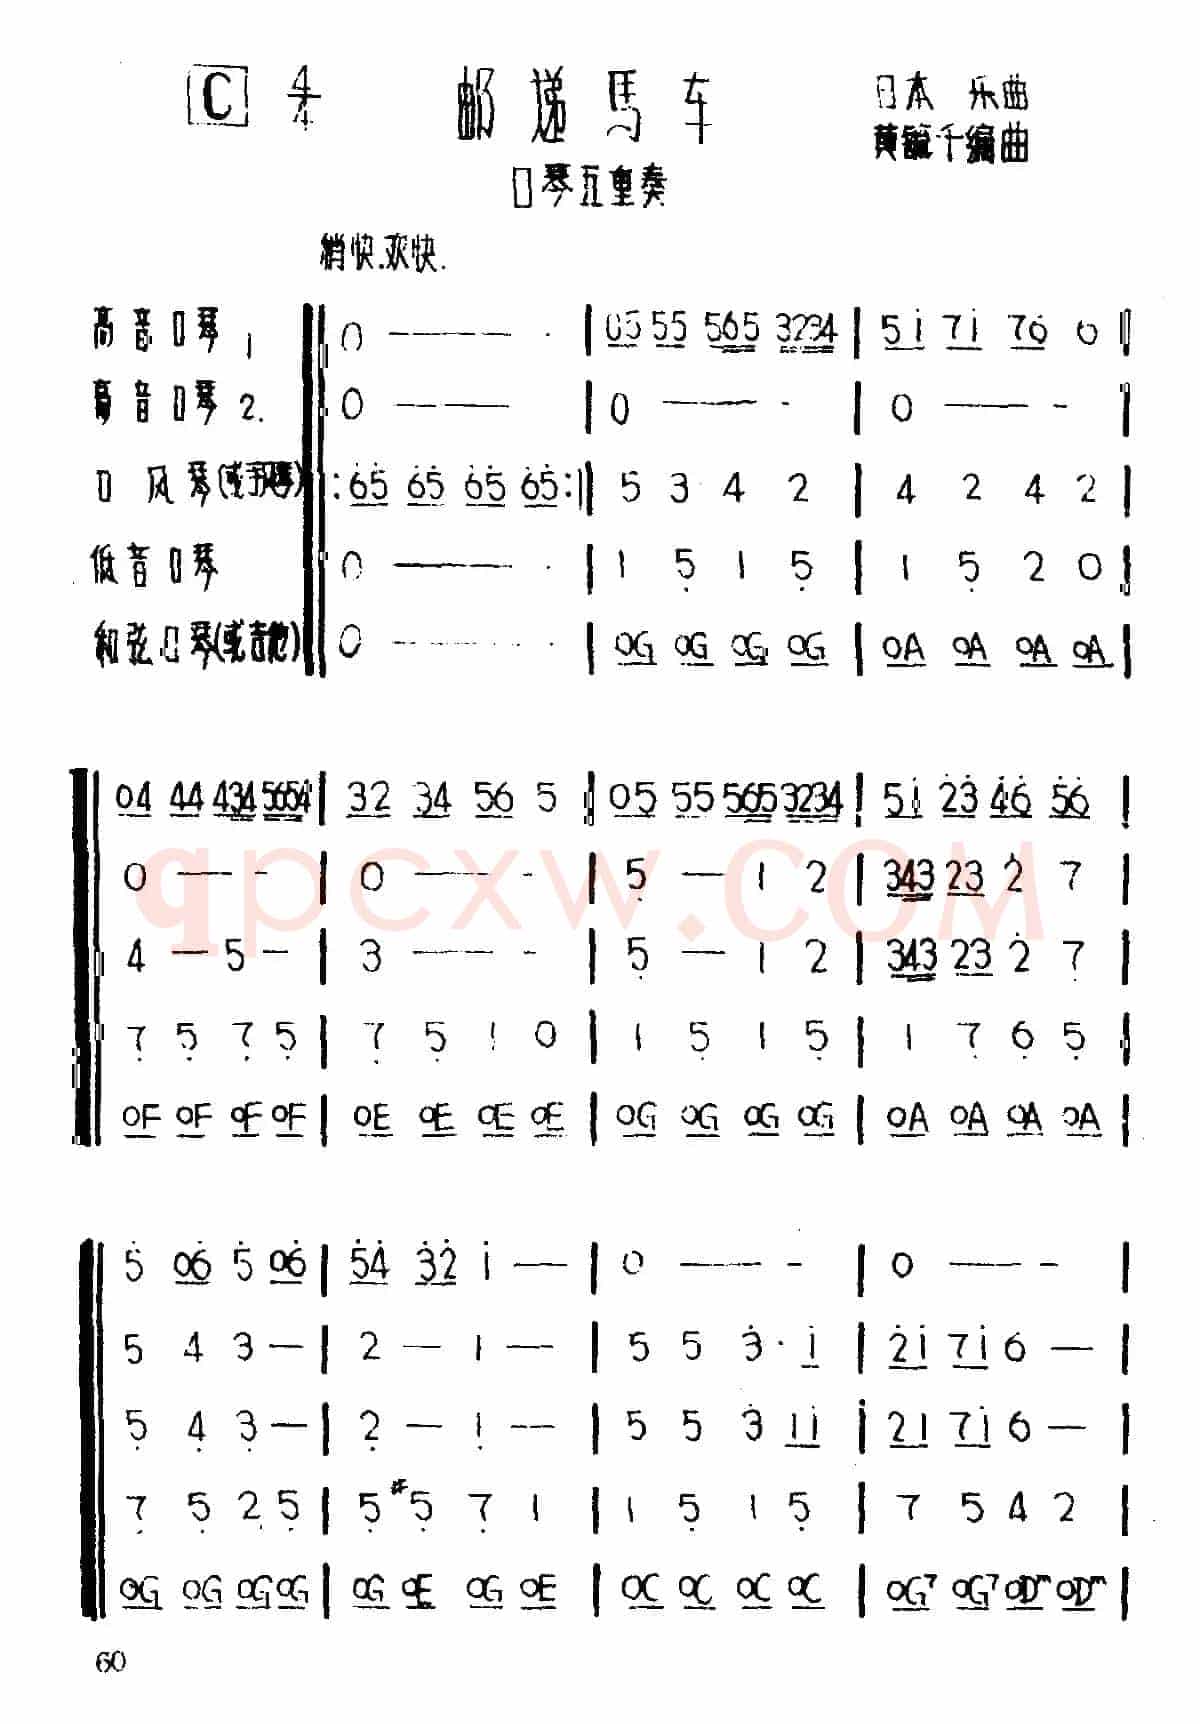 C 4/4 邮递马车 日本乐曲
黄 千编曲
口琴五重奏
稍快.欢快.
高音口琴 1 0 - - - - · | 05 55 565 3234 | 5i 7i 76 0 |
高音口琴 2. 0 - - - | 0 - - - | 0 - - - |
口风琴(或手风琴) :65 65 65 65:| 5 3 4 2 | 4 2 4 2 |
低音口琴 0 - - · | 1 5 1 5 | 1 5 2 0 |
和弦口琴(或吉他) 0 - - - - · | 0G 0G 0G 0G | 0A 0A 0A 0A |
04 44 434 5654 | 32 34 56 5 | 05 55 565 3234 | 5i 23 46 56 |
0 - - - | 0 - - - | 5 - 1 2 | 343 23 2 7 |
qpcxw.COM
4 - 5 - | 3 - - - | 5 - 1 2 | 343 23 2 7 |
7 5 7 5 | 7 5 1 0 | 1 5 1 5 | 1 7 6 5 |
0F 0F 0F 0F | 0E 0E 0E 0E | 0G 0G 0G 0G | 0A 0A 0A 0A |
5 06 5 06 | 54 32 i - | 0 - - - | 0 - - - |
5 4 3 - | 2 - 1 - | 5 5 3 · i | 2i 7i 6 - |
5 4 3 - | 2 - 1 - | 5 5 3 1i | 21 7i 6 - |
7 5 2 5 | 5 #5 7 1 | 1 5 1 5 | 7 5 4 2 |
0G 0G 0G 0G | 0G 0E 0G 0E | 0C 0C 0C 0C | 0G7 0G7 0Dm 0Dm |
60